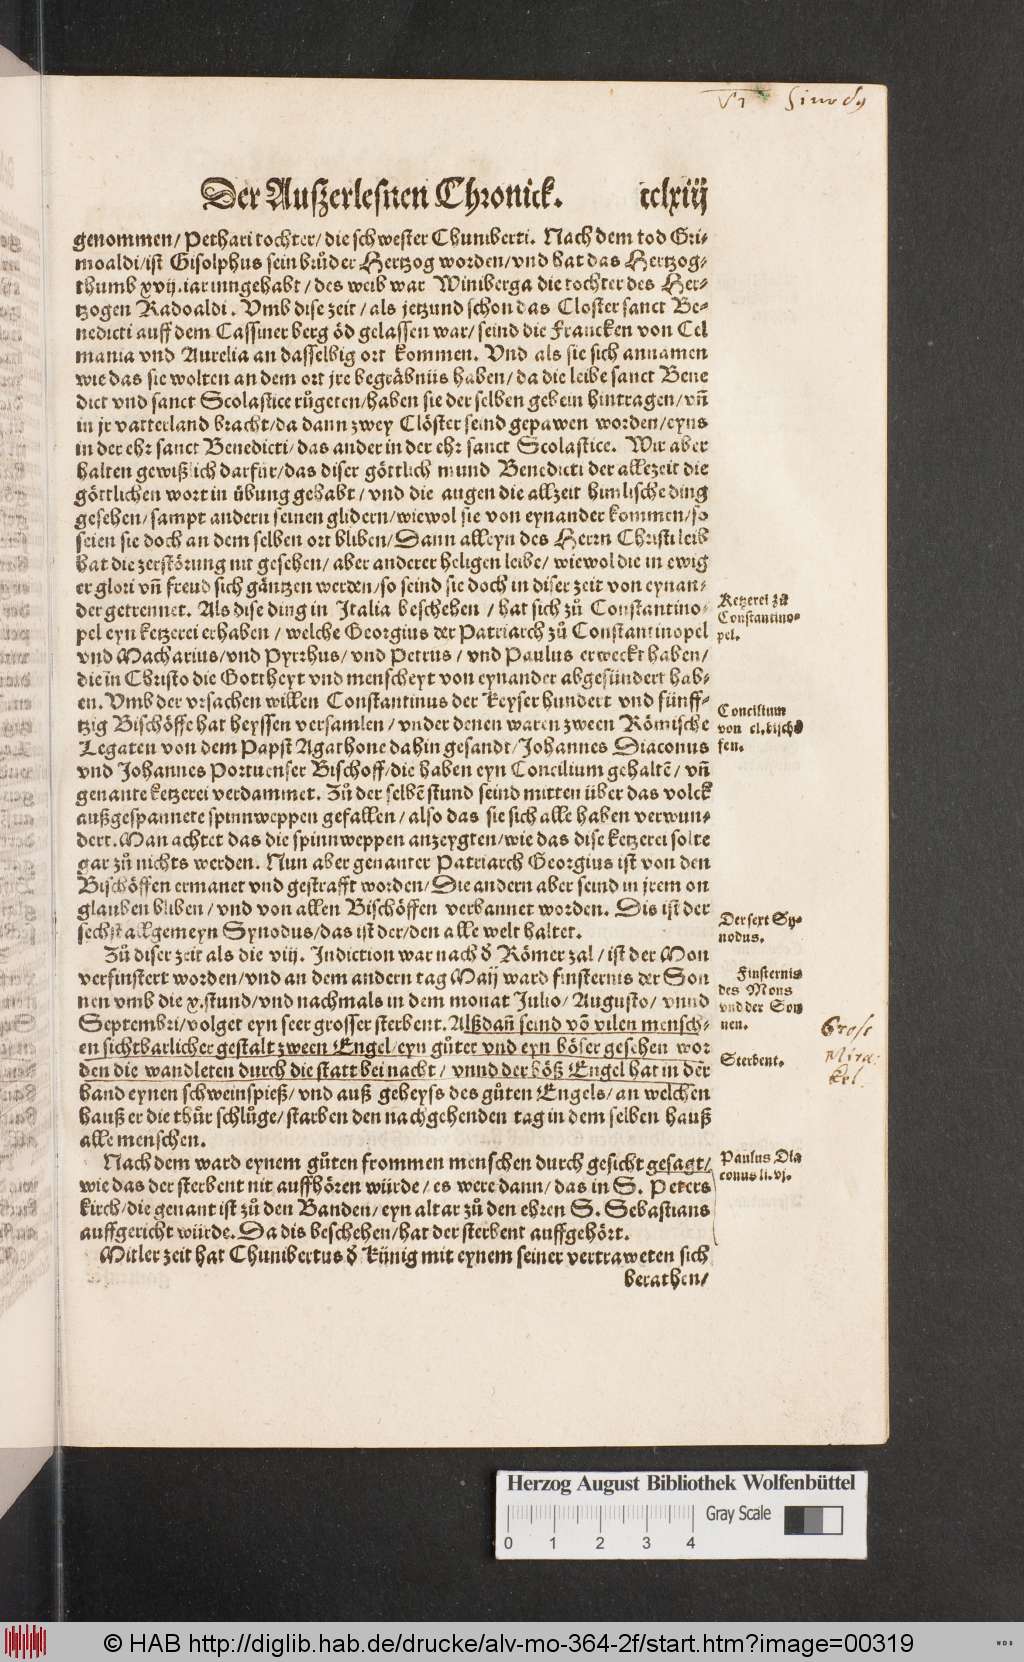 VI Sinodus
Der Außzerlesnen Chronick. cclxiij
genommen/ Pethari tochter/ die schwester Chuniberti. Nach dem tod Gri-
moaldi/ist Gisolphus sein brůder Hertzog worden/vnd hat das Hertzog-
thumb xvij.iar inngehabt/ des weib war Winiberga die tochter des Her-
tzogen Radoaldi. Vmb dise zeit/ als jetzund schon das Closter sanct Be-
nedicti auff dem Cassiner berg öd gelassen war/ seind die Francken von Cel
mania vnd Aurelia an dasselbig ort kommen. Vnd als sie sich annamen
wie das sie wolten an dem ort jre begräbniis haben/ da die leibe sanct Bene
dict vnd sanct Scolastice růgeten/haben sie der selben gebein hintragen/vñ
in jr vatterland bracht/da dann zwey Clöster seind gepawen worden/eyns
in der ehr sanct Benedicti/das ander in der ehr sanct Scolastice. Wir aber
halten gewißlich darfür/das diser göttlich mund Benedicti der allezeit die
göttlichen wort in übung gehabt/ vnd die augen die allzeit himlische ding
gesehen/sampt andern seinen glidern/wiewol sie von eynander kommen/so
seien sie doch an dem selben ort bliben/Dann alleyn des Herrn Christi leib
hat die zerstörung nit gesehen/ aber anderer heligen leibe/ wiewol die in ewig
er glori vñ freud sich gäntzen werden/so seind sie doch in diser zeit von eynan-
der getrennet. Als dise ding in Italia beschehen / hat sich zů Constantino-
pel eyn ketzerei erhaben / welche Georgius der Patriarch zů Constantinopel
vnd Macharius/vnd Pyrrhus/ vnd Petrus / vnd Paulus erweckt haben/
die in Christo die Gottheyt vnd menscheyt von eynander abgesündert hab-
en. Vmb der vrsachen willen Constantinus der Keyser hundert vnd fünff-
tzig Bischöffe hat heyssen versamlen / vnder denen waren zween Römische
Legaten von dem Papst Agathone dahin gesandt/Johannes Diaconus
vnd Johannes Portuenser Bischoff/die haben eyn Concilium gehaltẽ/ vñ
genante ketzerei verdammet. Zů der selbẽ stund seind mitten über das volck
außgespannete spinnweppen gefallen/ also das sie sich alle haben verwun-
dert. Man achtet das die spinnweppen anzeygten/wie das dise ketzerei solte
gar zů nichts werden. Nun aber genanter Patriarch Georgius ist von den
Bischöffen ermanet vnd gestrafft worden/Die andern aber seind in jrem on
glauben bliben/ vnd von allen Bischöffen verbannet worden. Dis ist der
sechst allgemeyn Synodus/das ist der/den alle welt haltet.
Zů diser zeit als die viij. Indiction war nach ð Römer zal/ ist der Mon
verfinstert worden/vnd an dem andern tag Maij ward finsternis der Son
nen vmb die x.stund/vnd nachmals in dem monat Julio/ Augusto/ vnnd
Septembri/volget eyn seer grosser sterbent. Alßdañ seind võ vilen mensch-
en sichtbarlicher gestalt zween Engel/eyn gůter vnd eyn böser gesehen wor
den die wandleten durch die statt bei nacht/ vnnd der böß Engel hat in der
hand eynen schweinspieß/ vnd auß geheyß des gůten Engels/an welchen
hauß er die thür schlůge/ starben den nachgehenden tag in dem selben hauß
alle menschen.
Nach dem ward eynem gůten frommen menschen durch gesicht gesagt/
wie das der sterbent nit auffhören würde/ es were dann/ das in S. Peters
kirch/die genant ist zů den Banden/ eyn altar zů den ehren S. Sebastians
auffgericht würde. Da dis beschehen/hat der sterbent auffgehört.
Mitler zeit hat Chunibertus ð Künig mit eynem seiner vertraweten sich
berathen/
Ketzerei zů
Constantino-
pel.
Concilium
von cl. bischö
fen.
Der sext Sy-
nodus.
Finsternis
des Mons
vnd der Son
nen.
Sterbent.
Grose
Mira-
kel.
Paulus Dia
conus li.vj.
Herzog August Bibliothek Wolfenbüttel
Gray Scale
0 1 2 3 4
© HAB http://diglib.hab.de/drucke/alv-mo-364-2f/start.htm?image=00319